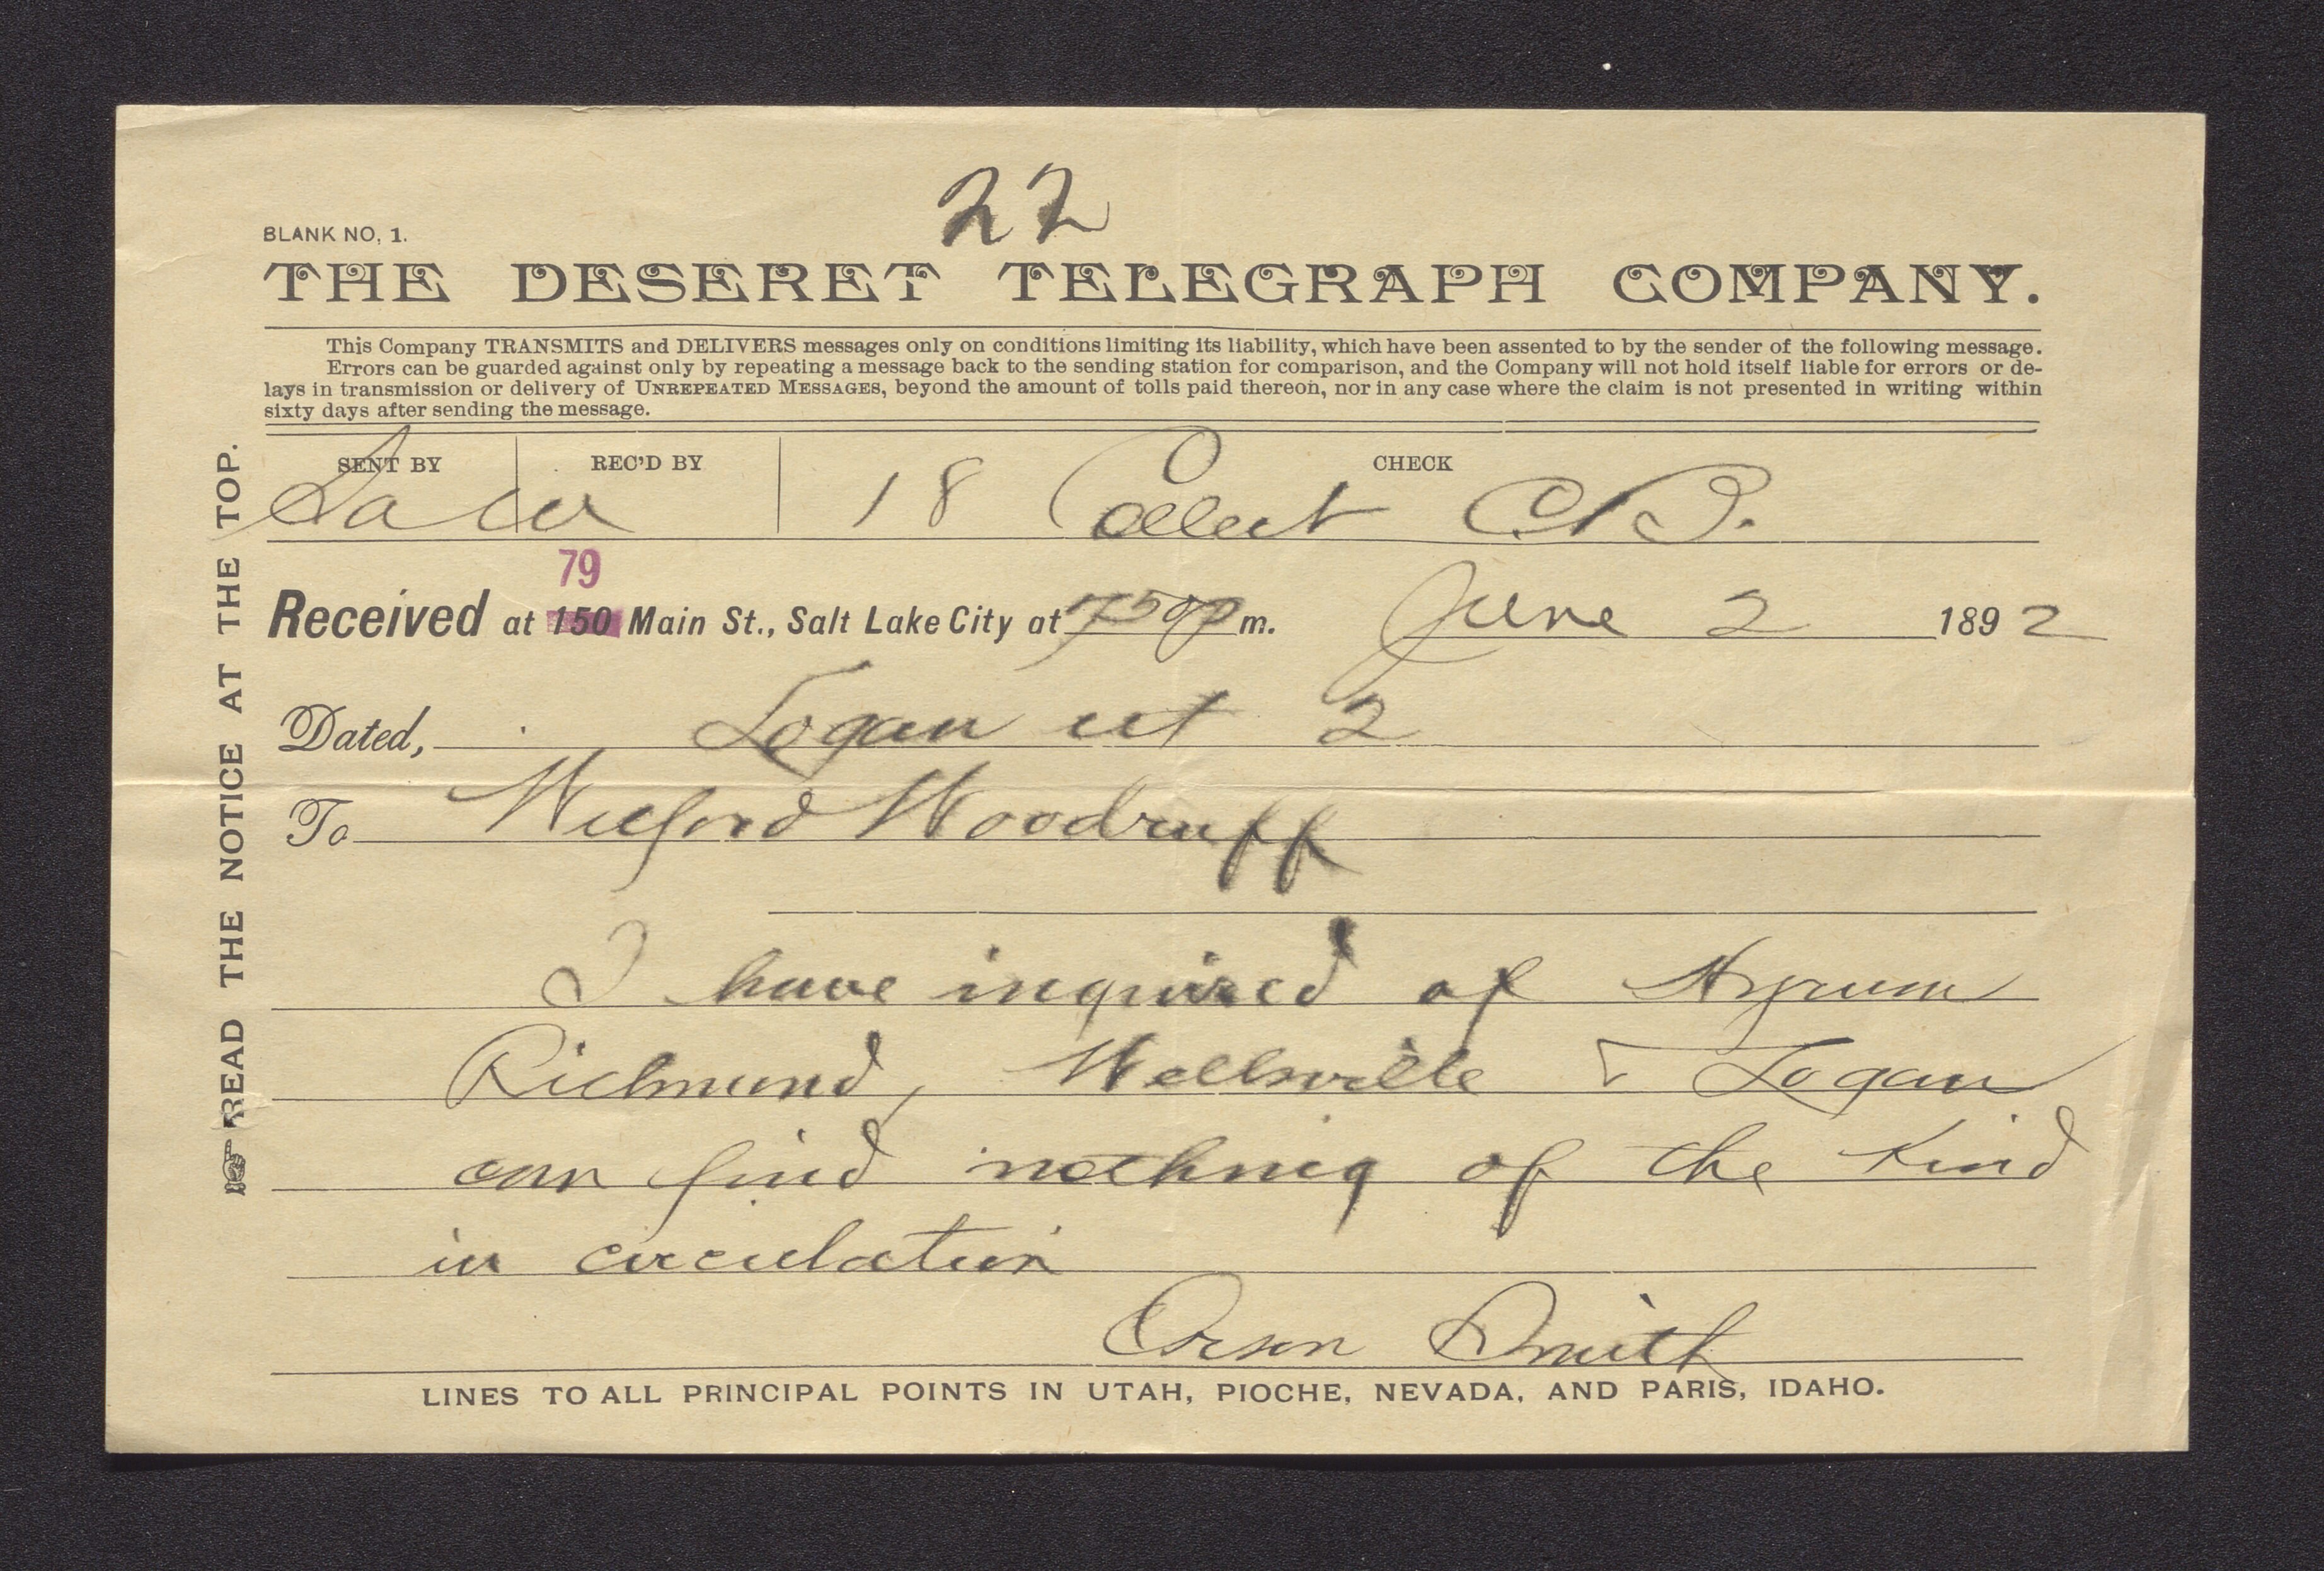 22
BLANK NO, 1.
THE DESERET TELEGRAPH COMPANY.
This Company TRANSMITS and DELIVERS messages only on conditions limiting its liability, which have been assented to by the sender of the following message.
Errors can be guarded against only by repeating a message back to the sending station for comparison, and the Company will not hold itself liable for errors or de-
lays in transmission or delivery of UNREPEATED MESSAGES, beyond the amount of tolls paid thereon, nor in any case where the claim is not presented in writing within
sixty days after sending the message.
SENT BY REC'D BY CHECK
18 Collect
79
Received at 150 Main St., Salt Lake City at 750 p m. June 2 1892
Dated, Logan ut 2
To Wilford Woodruff
I have inquired of Hyrum
Richmond, Wellsville & Logan
can find nothing of the kind
in circulation
Orson Smith
LINES TO ALL PRINCIPAL POINTS IN UTAH, PIOCHE, NEVADA, AND PARIS, IDAHO.
READ THE NOTICE AT THE TOP.